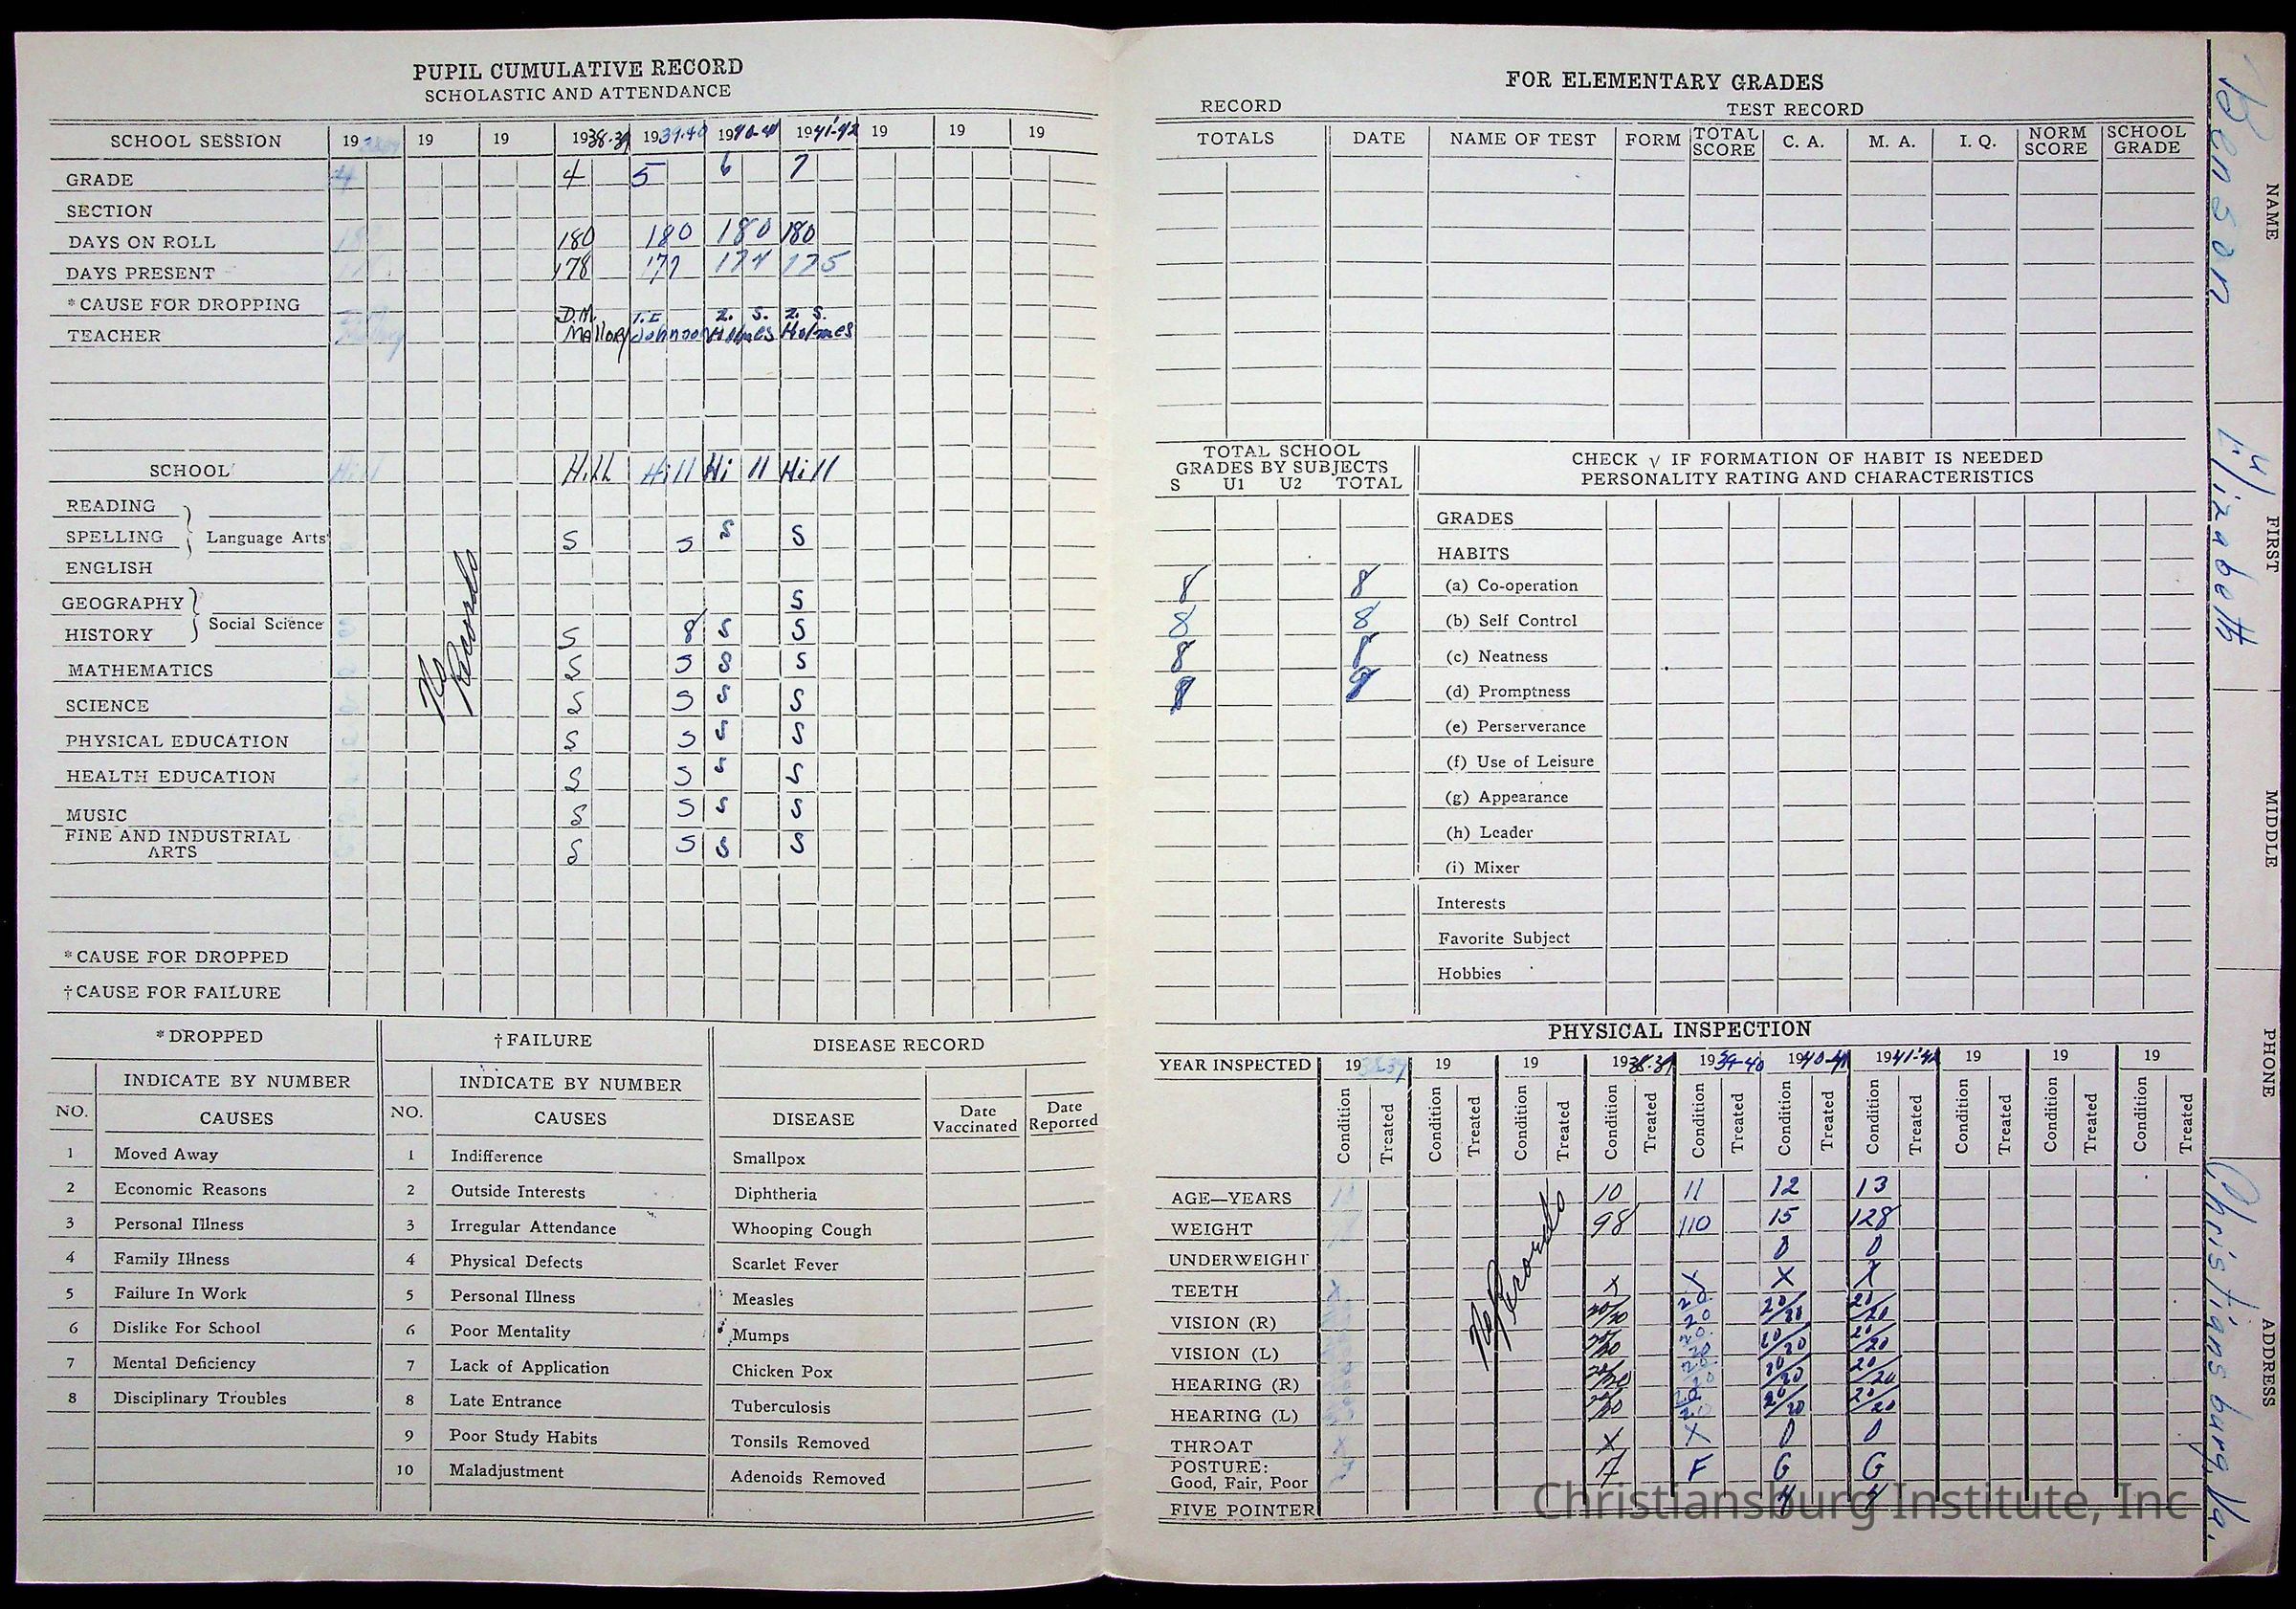 PUPIL CUMULATIVE RECORD
SCHOLASTIC AND ATTENDANCE
SCHOOL SESSION 19 19 19 1938-39 1939-40 1940-41 1941-42 19 19 19
GRADE 4 4 5 6 7
SECTION
DAYS ON ROLL 180 180 180 180
DAYS PRESENT 178 177 174 175
*CAUSE FOR DROPPING
D.M. T.I. Z. S. Z. S.
TEACHER Mallory Johnson Holmes Holmes
SCHOOL Hill Hill Hill Hill Hill
READING
SPELLING Language Arts S S S S
ENGLISH
GEOGRAPHY S
HISTORY Social Science S S S S
MATHEMATICS S S S S
SCIENCE S S S S
PHYSICAL EDUCATION S S S S
HEALTH EDUCATION S S S S
MUSIC S S S S
FINE AND INDUSTRIAL
ARTS S S S S
No
Records
*CAUSE FOR DROPPED
†CAUSE FOR FAILURE
*DROPPED
INDICATE BY NUMBER
NO. CAUSES
1 Moved Away
2 Economic Reasons
3 Personal Illness
4 Family Illness
5 Failure In Work
6 Dislike For School
7 Mental Deficiency
8 Disciplinary Troubles
†FAILURE
INDICATE BY NUMBER
NO. CAUSES
1 Indifference
2 Outside Interests
3 Irregular Attendance
4 Physical Defects
5 Personal Illness
6 Poor Mentality
7 Lack of Application
8 Late Entrance
9 Poor Study Habits
10 Maladjustment
DISEASE RECORD
DISEASE Date Vaccinated Date Reported
Smallpox
Diphtheria
Whooping Cough
Scarlet Fever
Measles
Mumps
Chicken Pox
Tuberculosis
Tonsils Removed
Adenoids Removed
FOR ELEMENTARY GRADES
RECORD TEST RECORD
TOTALS DATE NAME OF TEST FORM TOTAL SCORE C. A. M. A. I. Q. NORM SCORE SCHOOL GRADE
TOTAL SCHOOL
GRADES BY SUBJECTS
S U1 U2 TOTAL
8 8
8 8
8 8
8 8
CHECK √ IF FORMATION OF HABIT IS NEEDED
PERSONALITY RATING AND CHARACTERISTICS
GRADES
HABITS
(a) Co-operation
(b) Self Control
(c) Neatness
(d) Promptness
(e) Perserverance
(f) Use of Leisure
(g) Appearance
(h) Leader
(i) Mixer
Interests
Favorite Subject
Hobbies
PHYSICAL INSPECTION
YEAR INSPECTED 19 38-39 19 19 1938-39 1939-40 1940-41 1941-42 19 19 19
Condition Treated Condition Treated Condition Treated Condition Treated Condition Treated Condition Treated Condition Treated Condition Treated Condition Treated Condition Treated
AGE—YEARS 10 11 12 13
WEIGHT 98 110 15 128
UNDERWEIGHT 0 0
TEETH X X X X X
VISION (R) 20/20 20/20 20/20 20/20
VISION (L) 20/20 20/20 20/20 20/20
HEARING (R) 20/20 20/20 20/20 20/20
HEARING (L) 20/20 20/20 20/20 20/20
THROAT X X 0 0
POSTURE:
Good, Fair, Poor F F G G
FIVE POINTER 4 4
No Records
NAME FIRST MIDDLE PHONE ADDRESS
Benson Elizabeth Christiansburg, Va.
Christiansburg Institute, Inc